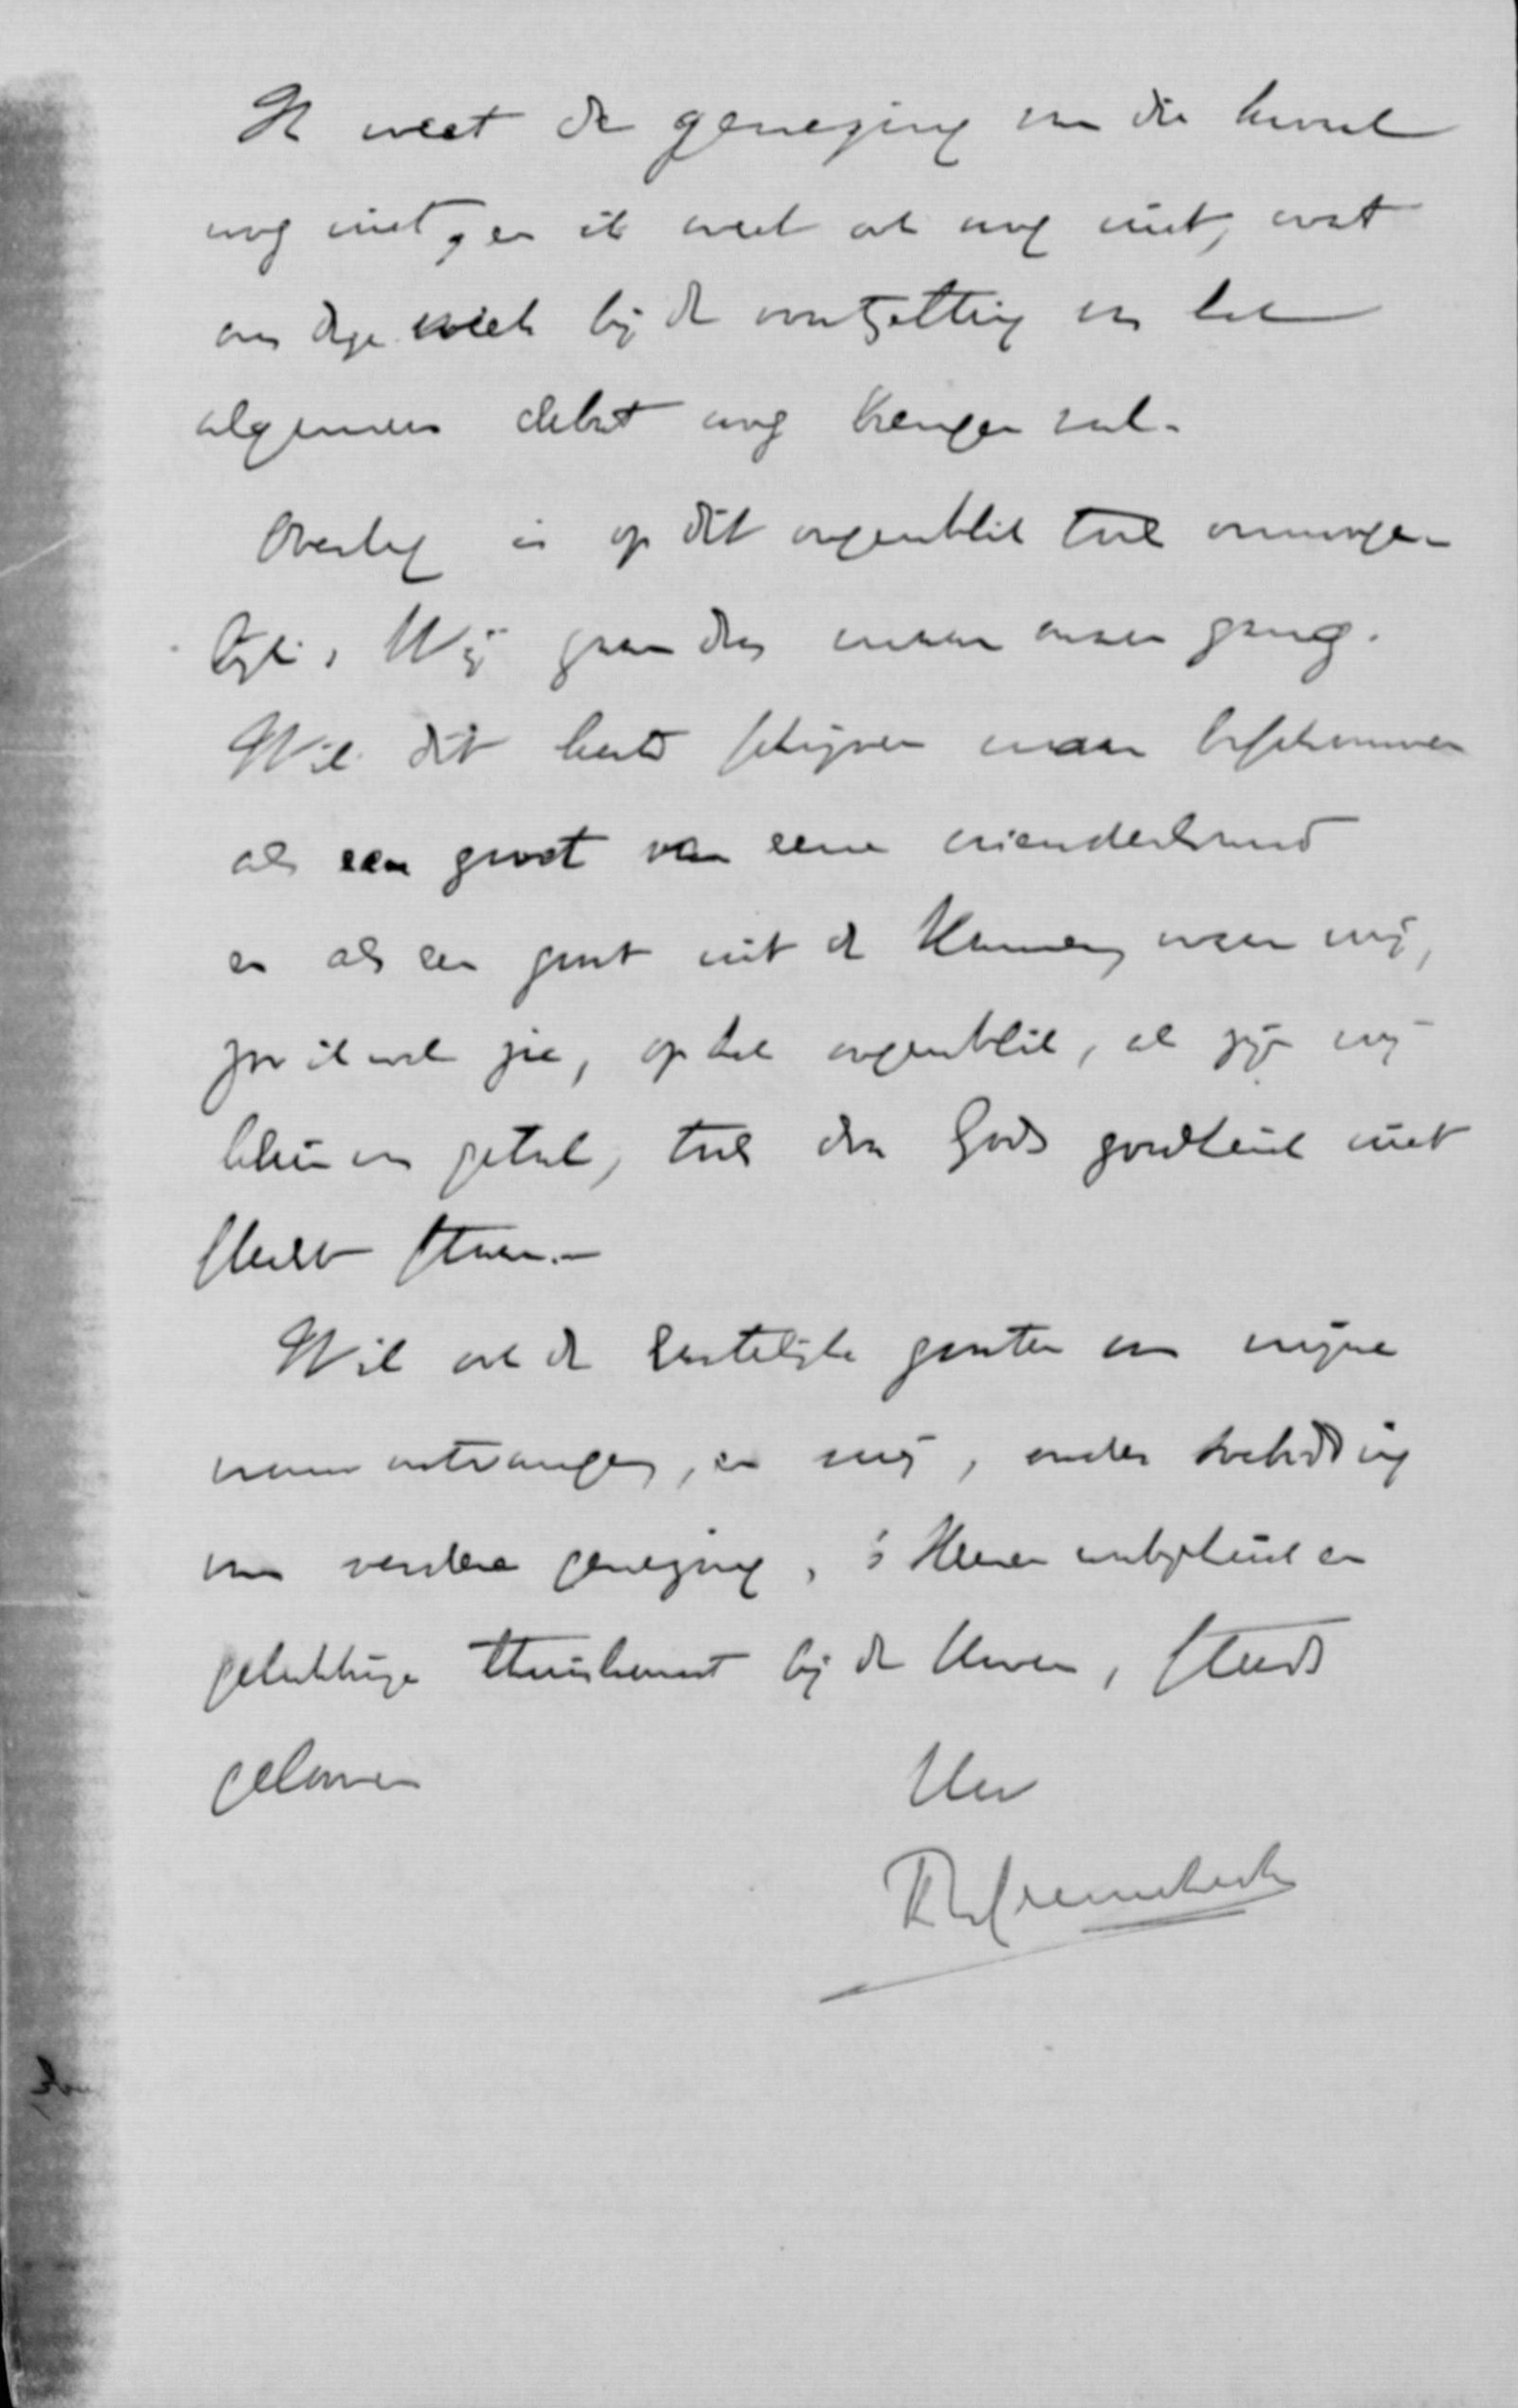 Ik weet de geneging van die kunst
nog niet, en ik weet ook nog niet, wat
ons deze week bij de voortzetting van het
algemeen debat nog brengen zal.
Overleg is op dit oogenblik toch onmoge-
lijk. Wij gaan dus maar onzen gang.
Wil dit haastig schrijven maar beschouwen
als een groet van eene vriendenhand
en als een groet uit de Kamer, waar wij,
op het oogenblik, al zijn wij
klein in getal, toch door Gods goedheid niet
slecht staan.
Wil ook de hartelijke groeten van mijne
vrouw ontvangen, en mij, onder toebidding
van verdere geneging, 's Heeren nabijheid en
gelukkige thuiskomst bij de Uwen, steeds
gelooven
Uw